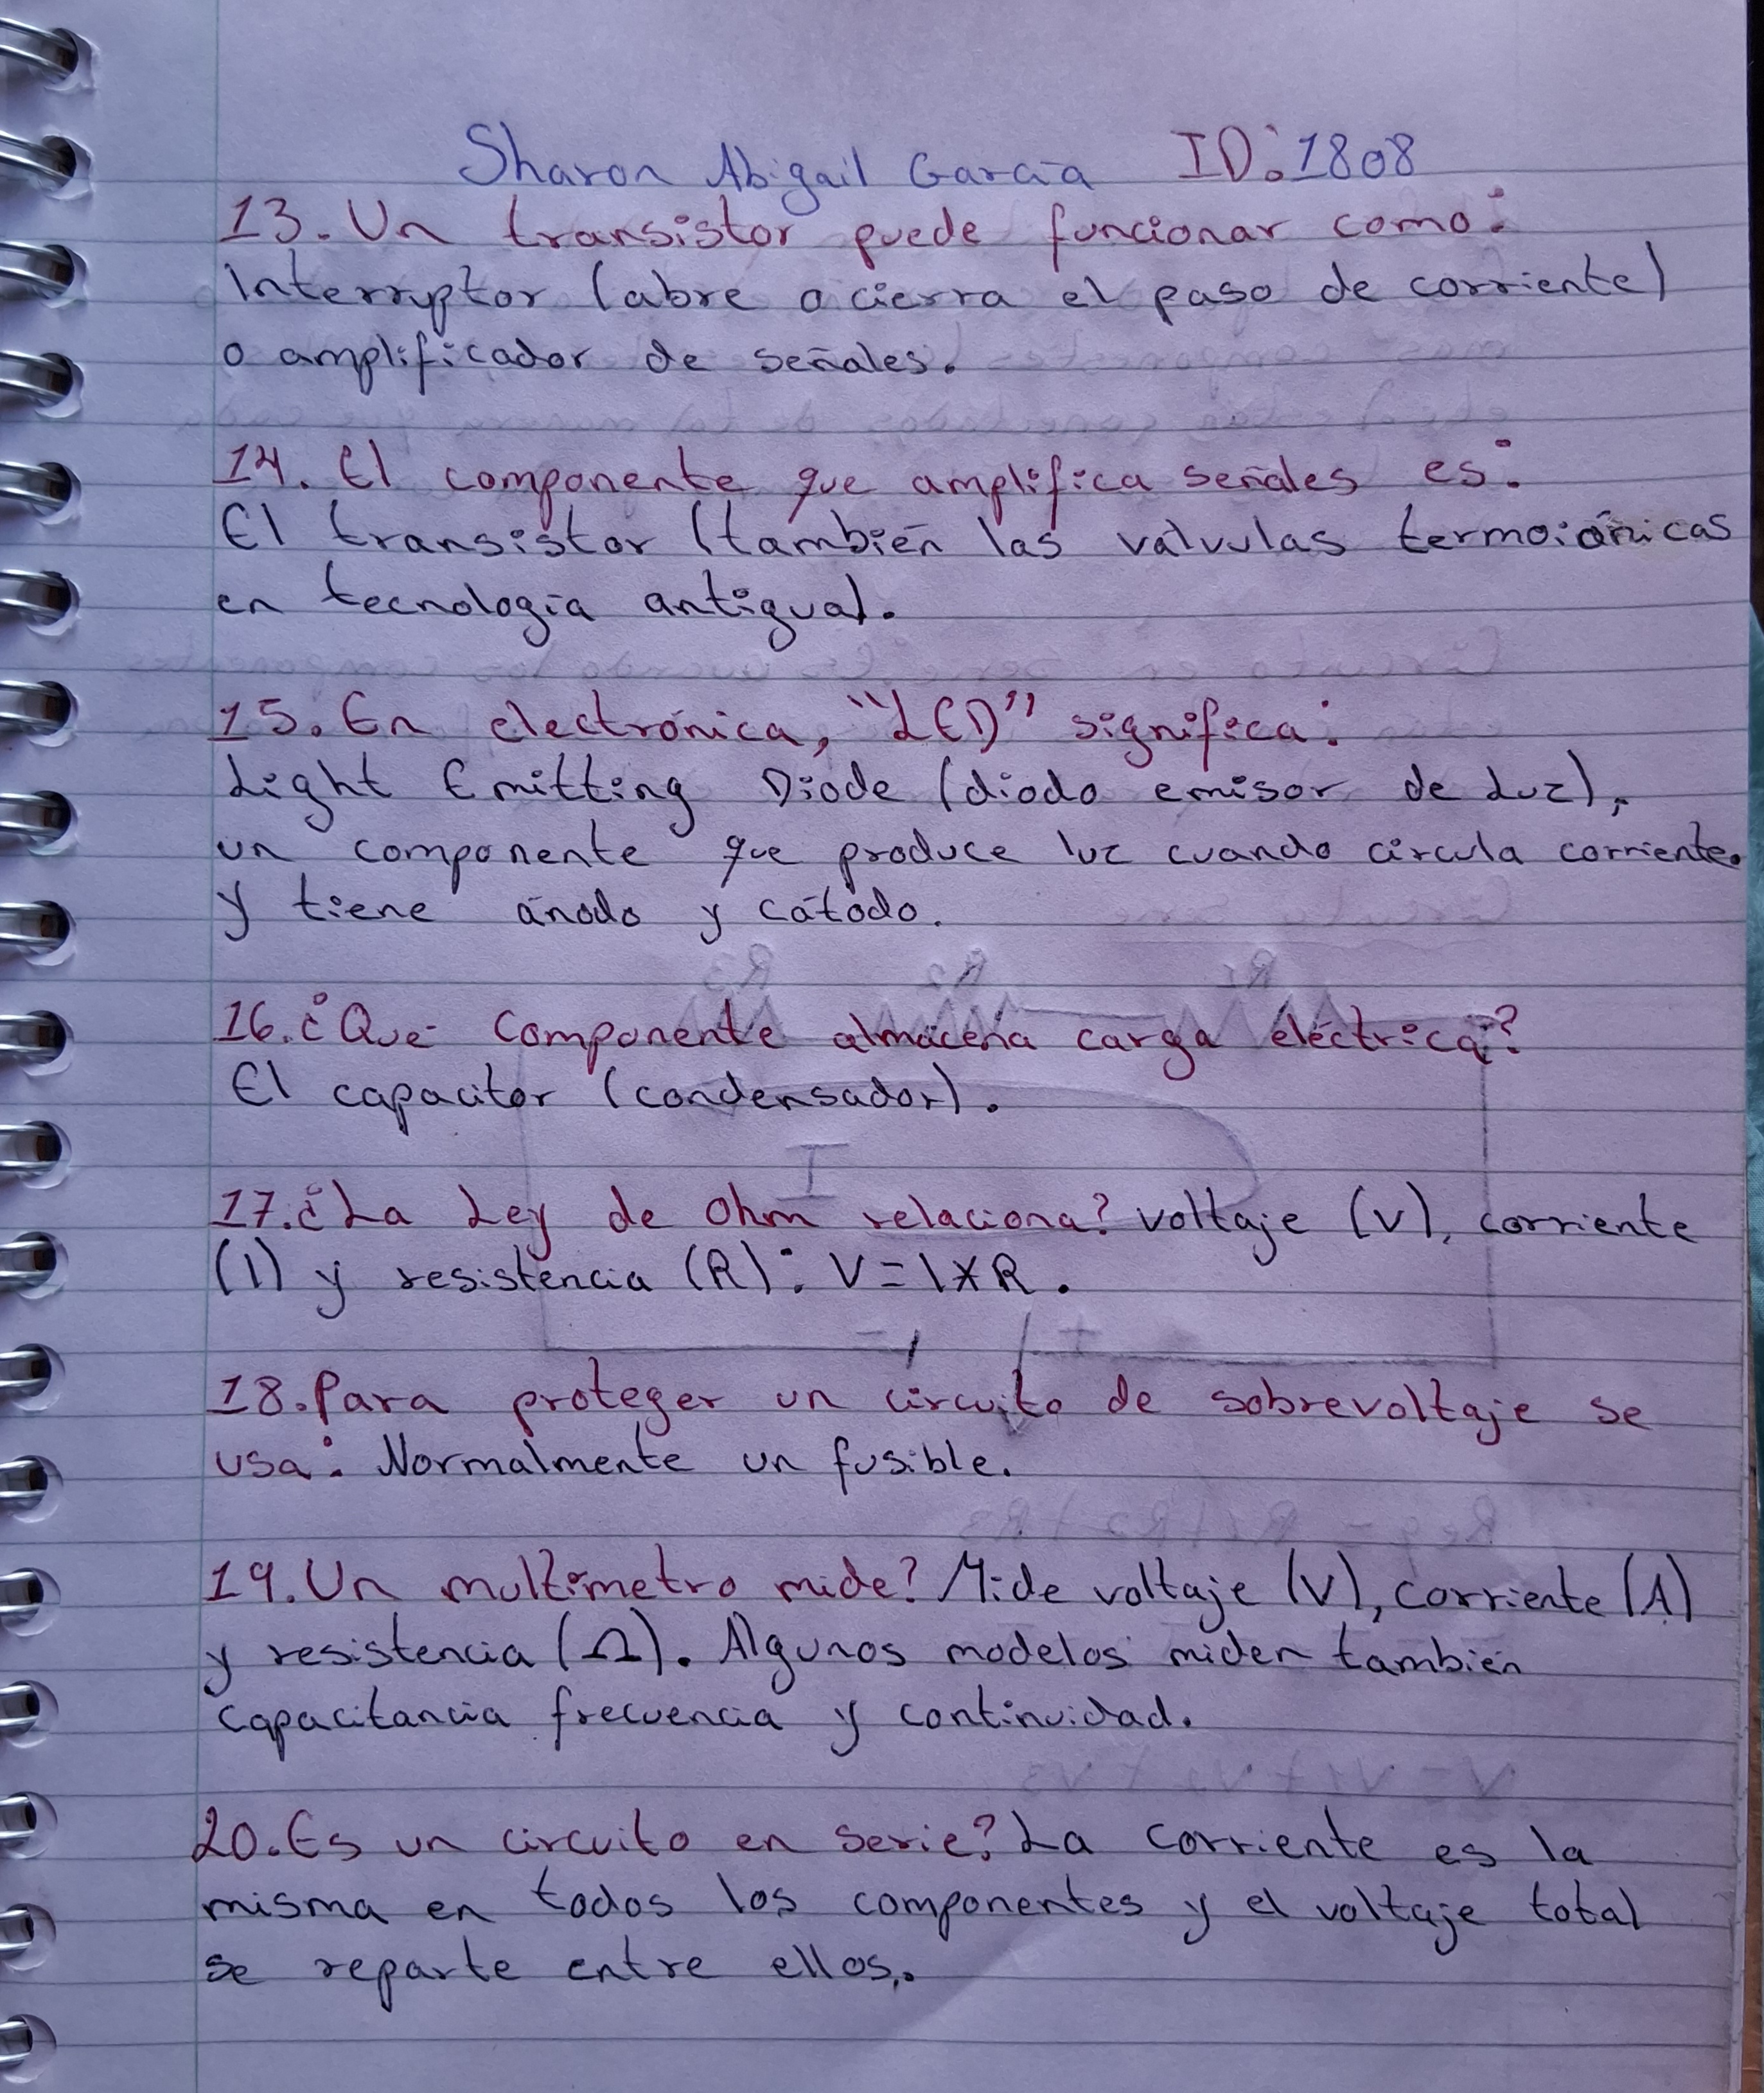 Sharon Abigail García ID:1808
13. Un transistor puede funcionar como:
Interruptor (abre o cierra el paso de corriente)
o amplificador de señales.
14. El componente que amplifica señales es:
El transistor (también las valvulas termoiónicas
en tecnología antigua).
15. En electrónica, "LED" significa:
Light Emitting Diode (diodo emisor de Luz),
un componente que produce luz cuando circula corriente.
y tiene ánodo y cátodo.
16. ¿Que componente almacena carga eléctrica?
El capacitor (condensador).
17. ¿La Ley de Ohm relaciona? voltaje (V), corriente
(I) y resistencia (R): V=I*R.
18. Para proteger un circuito de sobrevoltaje se
usa: Normalmente un fusible.
19. Un multímetro mide? Mide voltaje (V), corriente (A)
y resistencia (Ω). Algunos modelos miden también
capacitancia frecuencia y continuidad.
20. Es un circuito en serie? La corriente es la
misma en todos los componentes y el voltaje total
se reparte entre ellos.